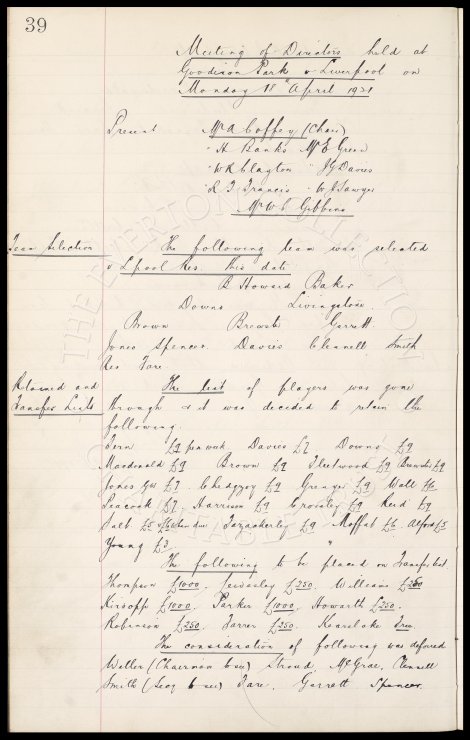 39
Meeting of Directors held at
Goodison Park v Liverpool on
Monday 18th April 1921
Present Mr A Coffey (Chair)
" H Banks Mr E Green
" W R Clayton " J G Davies
" R T Francis " W J Sawyer
Mr W C Gibbins
Team Selection The following team was selected
v Lpool Res. this date
B Howard Baker
Downs Livingstone
Brown Brewster Garrett
Jones Spencer Davies Clennell Smith
Res Fare
Retained and The list of players was gone
Transfer Lists through & it was decided to retain the
following.
Fern £9 per week Davies £7 Downs £9
Macdonald £9 Brown £9 Fleetwood £9 Brewster £9
Jones £7 Chedgzoy £9 Grenyer £9 Wall £6
Peacock £7 Harrison £9 Crossley £9 Reid £9
Salt £5 Fazackerley £9 Moffat £6 Alford £5
Young £3
The following to be placed on Transfer list
Thompson £1000 £250 Williams £250
Kirsopp £1000 Parker £1000 Howarth £250
Robinson £250 £250 Free
The consideration of following was deferred
Weller (Chairman to see) Stroud, McGrae, Clennell
Smith (Secy to see) Fare, Garrett Spencer.
THE EVERTON COLLECTION